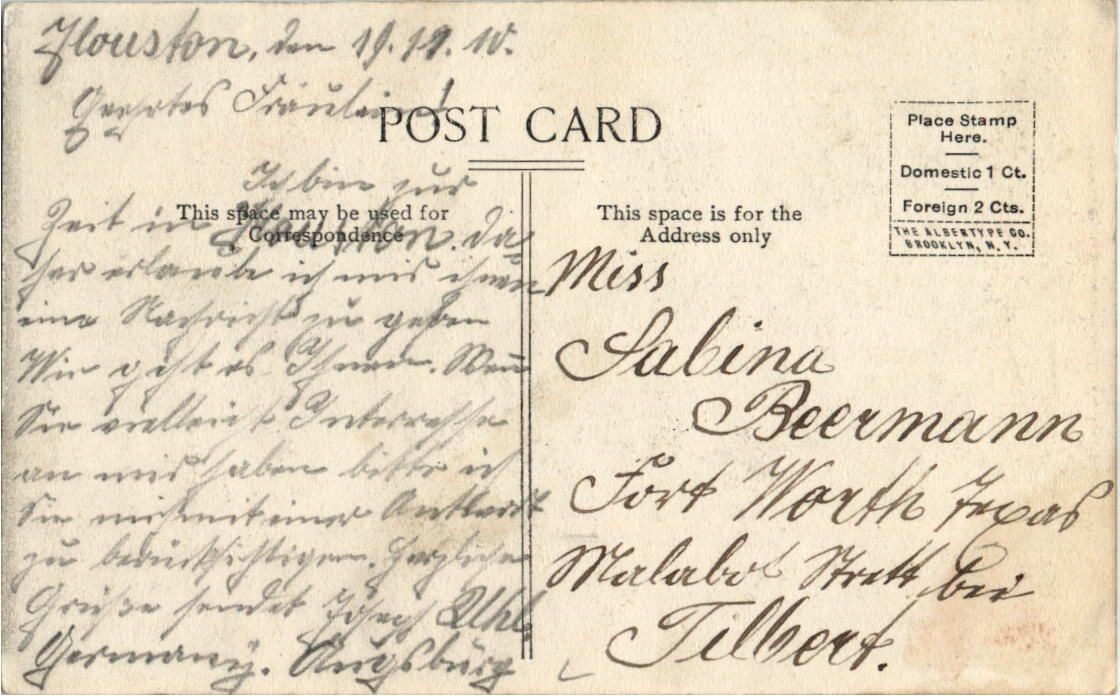 Houston, den 19.12.10.
Geehrtes Fräulein!
POST CARD
Ich bin zur
Zeit in Houston. Da
her erlaube ich mir ihnen
eine Nachricht zu geben
Wie geht es Ihnen. Wenn
Sie vielleicht Interresse
an mir haben bitte ich
Sie mich mit einer Antwort
zu berücksichtigen. Herzliche
Grüße sendet Joseph Uhl
Germany. Augsburg
This space may be used for
Correspondence
This space is for the
Address only
Place Stamp
Here.
Domestic 1 Ct.
Foreign 2 Cts.
THE ALBERTYPE CO.
BROOKLYN, N. Y.
Miss
Sabina
Beermann
Fort Worth Texas
Malabot Strett bei
Tilbert.